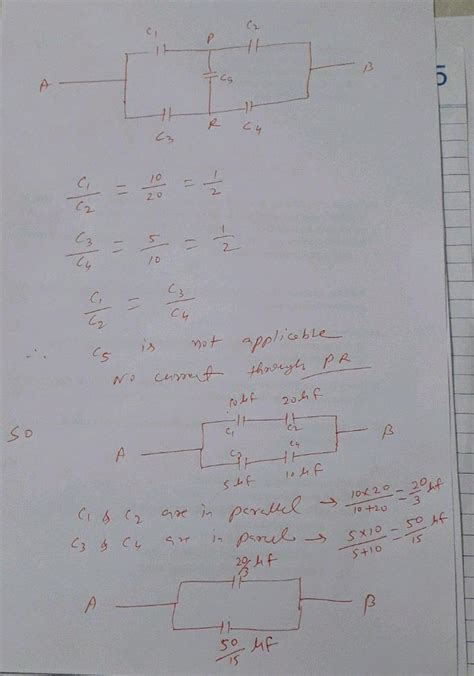 C1 P C2
A C5 B
5
C3 R C4
C1/C2 = 10/20 = 1/2
C3/C4 = 5/10 = 1/2
C1/C2 = C3/C4
∴ C5 is not applicable
No current through PR
so
10 μf 20 μf
C1 C2
A B
C3 C4
5 μf 10 μf
C1 & C2 are in parallel → 10×20/10+20 = 20/3 μf
C3 & C4 are in parcel → 5×10/5+10 = 50/15 μf
20/3 μf
A B
50/15 μf